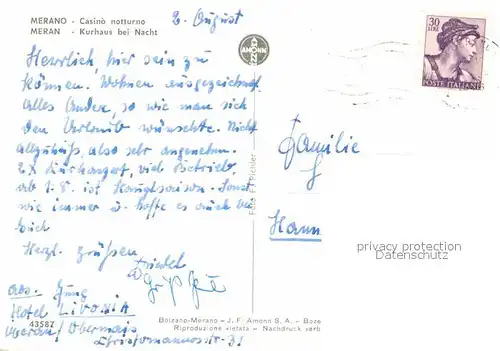 MERANO - Casinò notturno
MERAN - Kurhaus bei Nacht
2. August
AMONN
30
LIRE
POSTE ITALIANE
Herrlich, hier sein zu
können. Wohnen ausgezeichnet
alles andere, so wie man sich
den Urlaub wünschte. Nicht
allzuheiß, also sehr angenehm.
2x Kurkonzert, viel Betrieb,
ab 1.8. ist Hauptsaison. Sonst
wie immer u. hoffe es auch bei
Euch
Herzl. grüßen
Friedel
Familie
Hann
privacy protection
Datenschutz
Foto F. Pichler
Abs. Jung
Hotel LIVONIA
Meran/Obermais
Christomannosstr. 31
43587
Bolzano-Merano - J. F. Amonn S. A. - Boze
Riproduzione vietata - Nachdruck verb